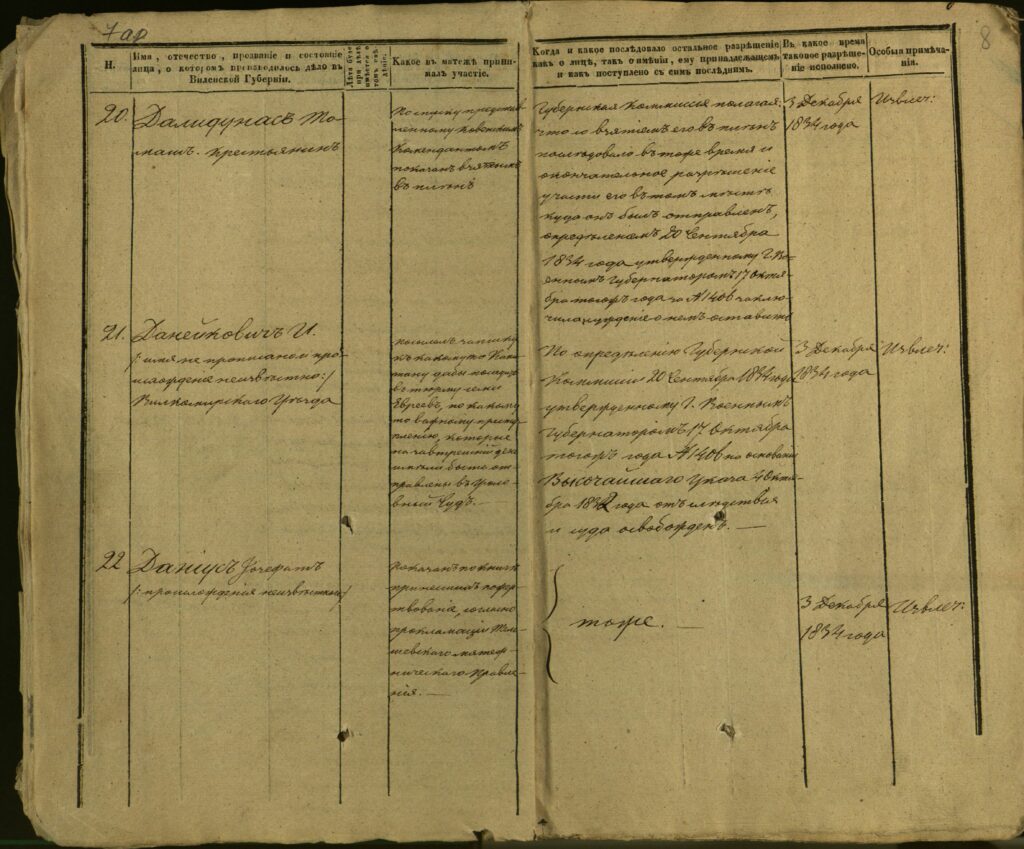 7 ар
8
Н.
Имя, отчество, прозваніе и состояніе
лица, о которомъ производилось дѣло въ
Виленской Губерніи.
Какое въ мятежѣ прини-
малъ участіе.
Когда и какое послѣдовало остальное разрѣшеніе
какъ о лицѣ, такъ о имѣніи, ему принадлежащемъ
и какъ поступлено съ симъ послѣднимъ.
Въ какое время
таковое разрѣше-
ніе исполнено.
Особыя примѣча-
нія.
20.
Далидунасъ То-
машъ. Крестьянинъ
По списку представ-
ленному Ковенскимъ
Комендантомъ
показанъ взятымъ
въ плѣнъ
Губернская Коммисія полагая:
что со взятіемъ его въ плѣнъ
послѣдовало въ тоже время и
окончательное разрѣшеніе
участи его въ томъ мѣстѣ
куда онъ былъ отправленъ,
опредѣленіемъ 20 Сентября
1834 года утвержденному Г. Во-
еннымъ Губернаторомъ 17 Октя-
бря того жъ года за № 1406 заклю-
чила сужденіе о немъ оставить
3 Декабря
1834 года
Извлеч:
21.
Данейковичъ И.
/: имя не прописано про-
исхожденія неизвѣстно:/
Вилкомирскаго Уѣзда
писалъ записку
къ какому то Капи-
тану дабы посадить
въ тюрьму семи
Евреевъ, по какому
то важному престу-
пленію, которые
на завтрешній день
имѣли быть от-
правлены въ Уголо-
вный Судъ.
По опредѣленію Губернской
Коммисіи 20 Сентября 1834 года
утвержденному Г. Военнымъ
Губернаторомъ 17 Октября
того жъ года № 1406 на основаніи
Высочайшаго Указа 4 Октя-
бря 1832 года отъ слѣдствія
и суда освобожденъ. —
3 Декабря
1834 года
Извлеч:
22
Даніусъ Іозефатъ
/: происхожденія неизвѣстнаго:/
Показанъ по книгѣ
принесшимъ пожер-
твованіе, согласно
прокламаціи Тель-
шевскаго мятеж-
ническаго Правле-
нія. —
тоже. —
3 Декабря
1834 года
Извлеч: